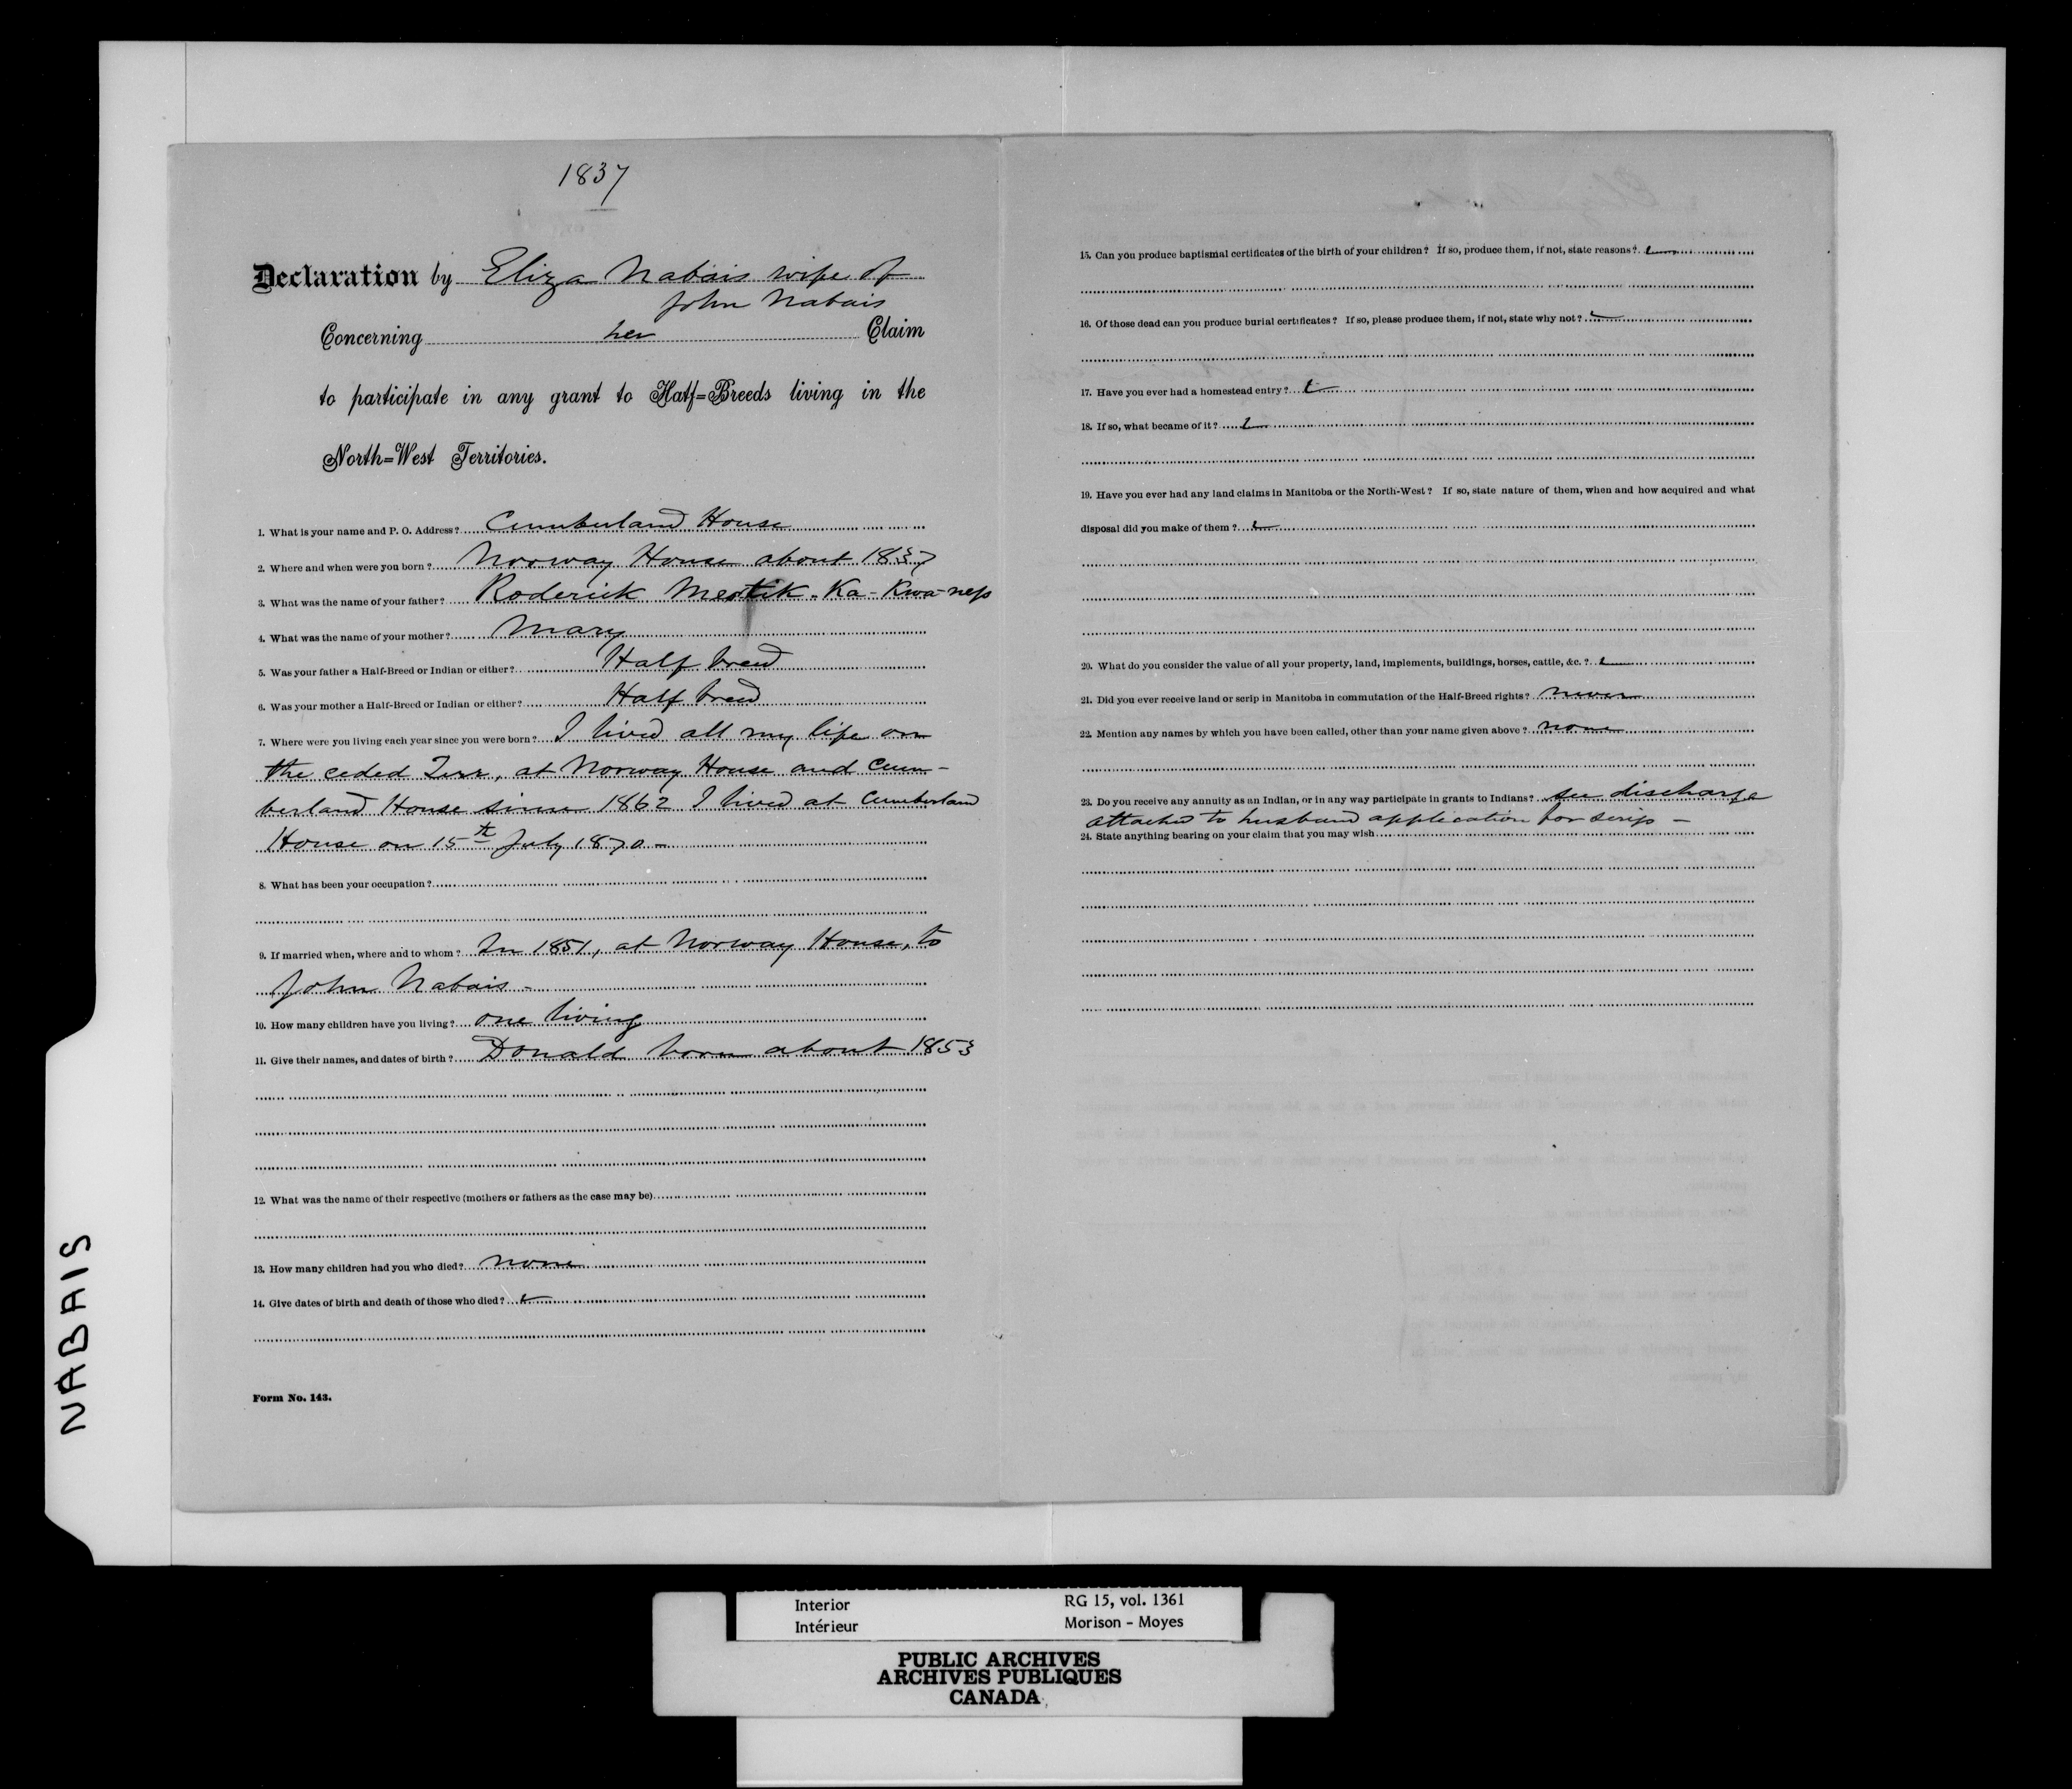 1837
Declaration by Eliza Nabais wife of
John Nabais
Concerning her Claim
to participate in any grant to Half=Breeds living in the
North=West Territories.
1. What is your name and P. O. Address? Cumberland House
2. Where and when were you born? Norway House about 1837
3. What was the name of your father? Roderick Mestik-Ka-Kwa-neps
4. What was the name of your mother? Mary
5. Was your father a Half-Breed or Indian or either? Half breed
6. Was your mother a Half-Breed or Indian or either? Half breed
7. Where were you living each year since you were born? I lived all my life on
the ceded Terr, at Norway House and Cum-
berland House since 1862 I lived at Cumberland
House on 15th July 1870 -
8. What has been your occupation?
9. If married when, where and to whom? In 1851, at Norway House, to
John Nabais -
10. How many children have you living? one living
11. Give their names, and dates of birth? Donald born about 1853
12. What was the name of their respective (mothers or fathers as the case may be)
13. How many children had you who died? none
14. Give dates of birth and death of those who died?
Form No. 143.
15. Can you produce baptismal certificates of the birth of your children? If so, produce them, if not, state reasons?
16. Of those dead can you produce burial certificates? If so, please produce them, if not, state why not?
17. Have you ever had a homestead entry?
18. If so, what became of it?
19. Have you ever had any land claims in Manitoba or the North-West? If so, state nature of them, when and how acquired and what
disposal did you make of them?
20. What do you consider the value of all your property, land, implements, buildings, horses, cattle, &c.?
21. Did you ever receive land or scrip in Manitoba in commutation of the Half-Breed rights? never
22. Mention any names by which you have been called, other than your name given above? none
23. Do you receive any annuity as an Indian, or in any way participate in grants to Indians? see discharge
attached to husband application for scrip -
24. State anything bearing on your claim that you may wish
NABAIS
Interior RG 15, vol. 1361
Intérieur Morison - Moyes
PUBLIC ARCHIVES
ARCHIVES PUBLIQUES
CANADA